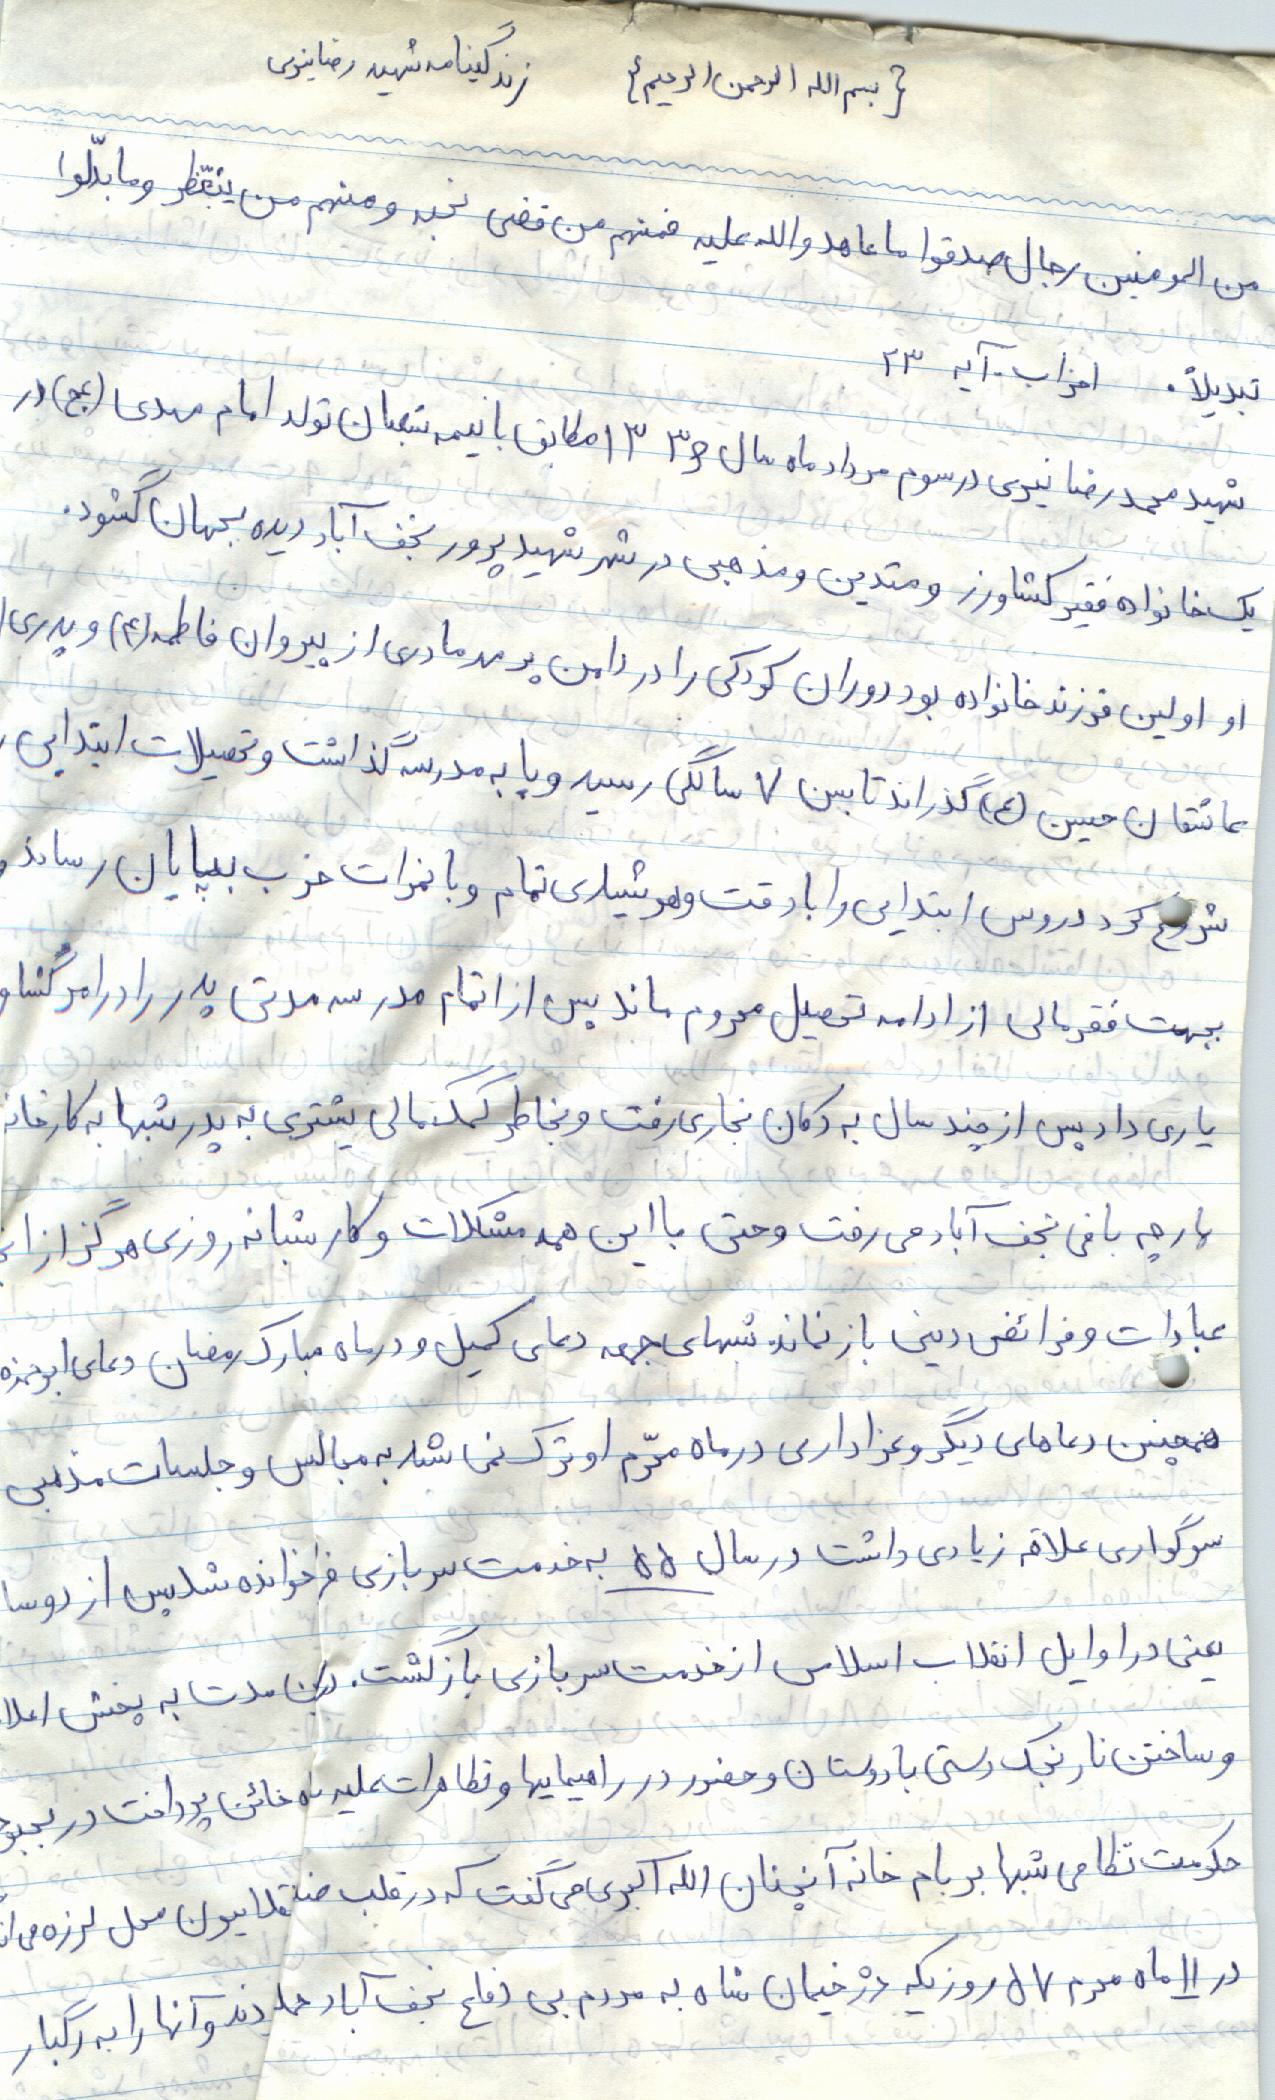 {بسم الله الرحمن الرحیم} زندگینامه شهید رضا نیری
من المومنین رجال صدقوا ما عاهدوالله علیه فمنهم من قضی نحبه و منهم من ینتظر و ما بدّلوا
تبدیلاً. احزاب. آیه ۲۳
شهید محمد رضا نیری در سوم مرداد ماه سال ۱۳۳۶ مطابق با نیمه شعبان تولد امام مهدی (عج) در
یک خانواده فقیر کشاورز و متدین و مذهبی در شهر شهید پرور نجف آباد دیده بجهان گشود.
او اولین فرزند خانواده بود دوران کودکی را در دامن پر مهر مادری از پیروان فاطمه (ع) و پدری
عاشقان حسین (ع) گذراند تا بسن ۷ سالگی رسید و پا به مدرسه گذاشت و تحصیلات ابتدایی
شروع کرد دروس ابتدایی را با دقت و هوشیاری تمام و با نمرات خوب بپایان رساند و
بجهت فقر مالی از ادامه تحصیل محروم ماند پس از اتمام مدرسه مدتی پدر را در امر کشاو
یاری داد پس از چند سال به دکان نجاری رفت و بخاطر کمک مالی بیشتری به پدر شبها به کارخانه
پارچه بافی نجف آباد می رفت و حتی با این همه مشکلات و کار شبانه روزی هرگز از انج
عبادات و فرائض دینی باز نماند. شبهای جمعه دعای کمیل و در ماه مبارک رمضان دعای ابوحمزه
همچنین دعاهای دیگر و عزاداری در ماه محرّم او ترک نمی شد به مجالس و جلسات مذهبی
سوگواری علاقه زیادی داشت در سال ۵۵ به خدمت سربازی فراخوانده شد پس از دو سا
یعنی در اوایل انقلاب اسلامی از خدمت سربازی بازگشت. در این مدت به پخش اعلا
و ساختن نارنجک دستی با دوستان و حضور در راهپیماییها و تظاهرات علیه شاه خائن پرداخت در بحبو
حکومت نظامی شبها بر بام خانه آنچنان الله اکبری می گفت که در قلب ضد انقلابیون محل لرزه می ان
در ۱۱ ماه محرم ۵۷ روزیکه دژخیمان شاه به مردم بی دفاع نجف آباد حمله کردند و آنها را به رگبار